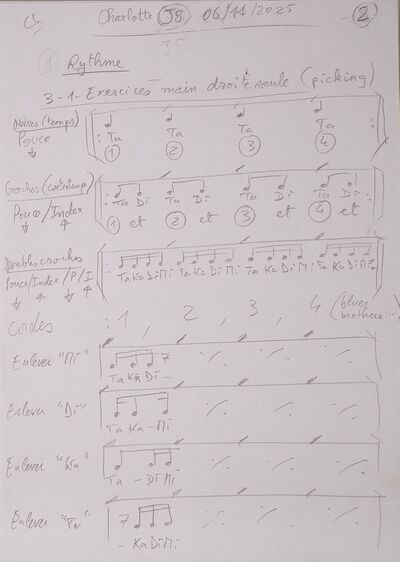 Charlotte 38 06/11/2025 2
1 Rythme
3-1-Exercices main droite seule (picking)
Noires (temps)
Pouce
: Ta Ta Ta Ta :
1 2 3 4
Croches (contretemps)
Pouce/Index
: Ta Di Ta Di Ta Di Ta Di :
1 et 2 et 3 et 4 et
Doubles croches
Pouce/Index/P/I
Ta Ka Di Mi Ta Ka Di Mi Ta Ka Di Mi Ta Ka Di Mi
Cordes : 1, 2, 3, 4 (blues brothers...)
Enlever "Mi"
Ta Ka Di -
Enlever "Di"
Ta Ka - Mi
Enlever "Ka"
Ta - Di Mi
Enlever "Ta"
- Ka Di Mi